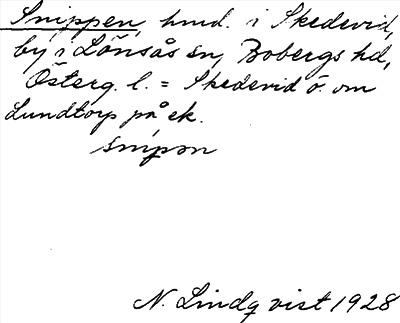 Snippen, hmd. i Skedevid,
by i Lönsås sn, Bobergs hd,
Österg. l. = Skedevid ö. om
Lundtorp på ek.
snipən
N. Lindqvist 1928